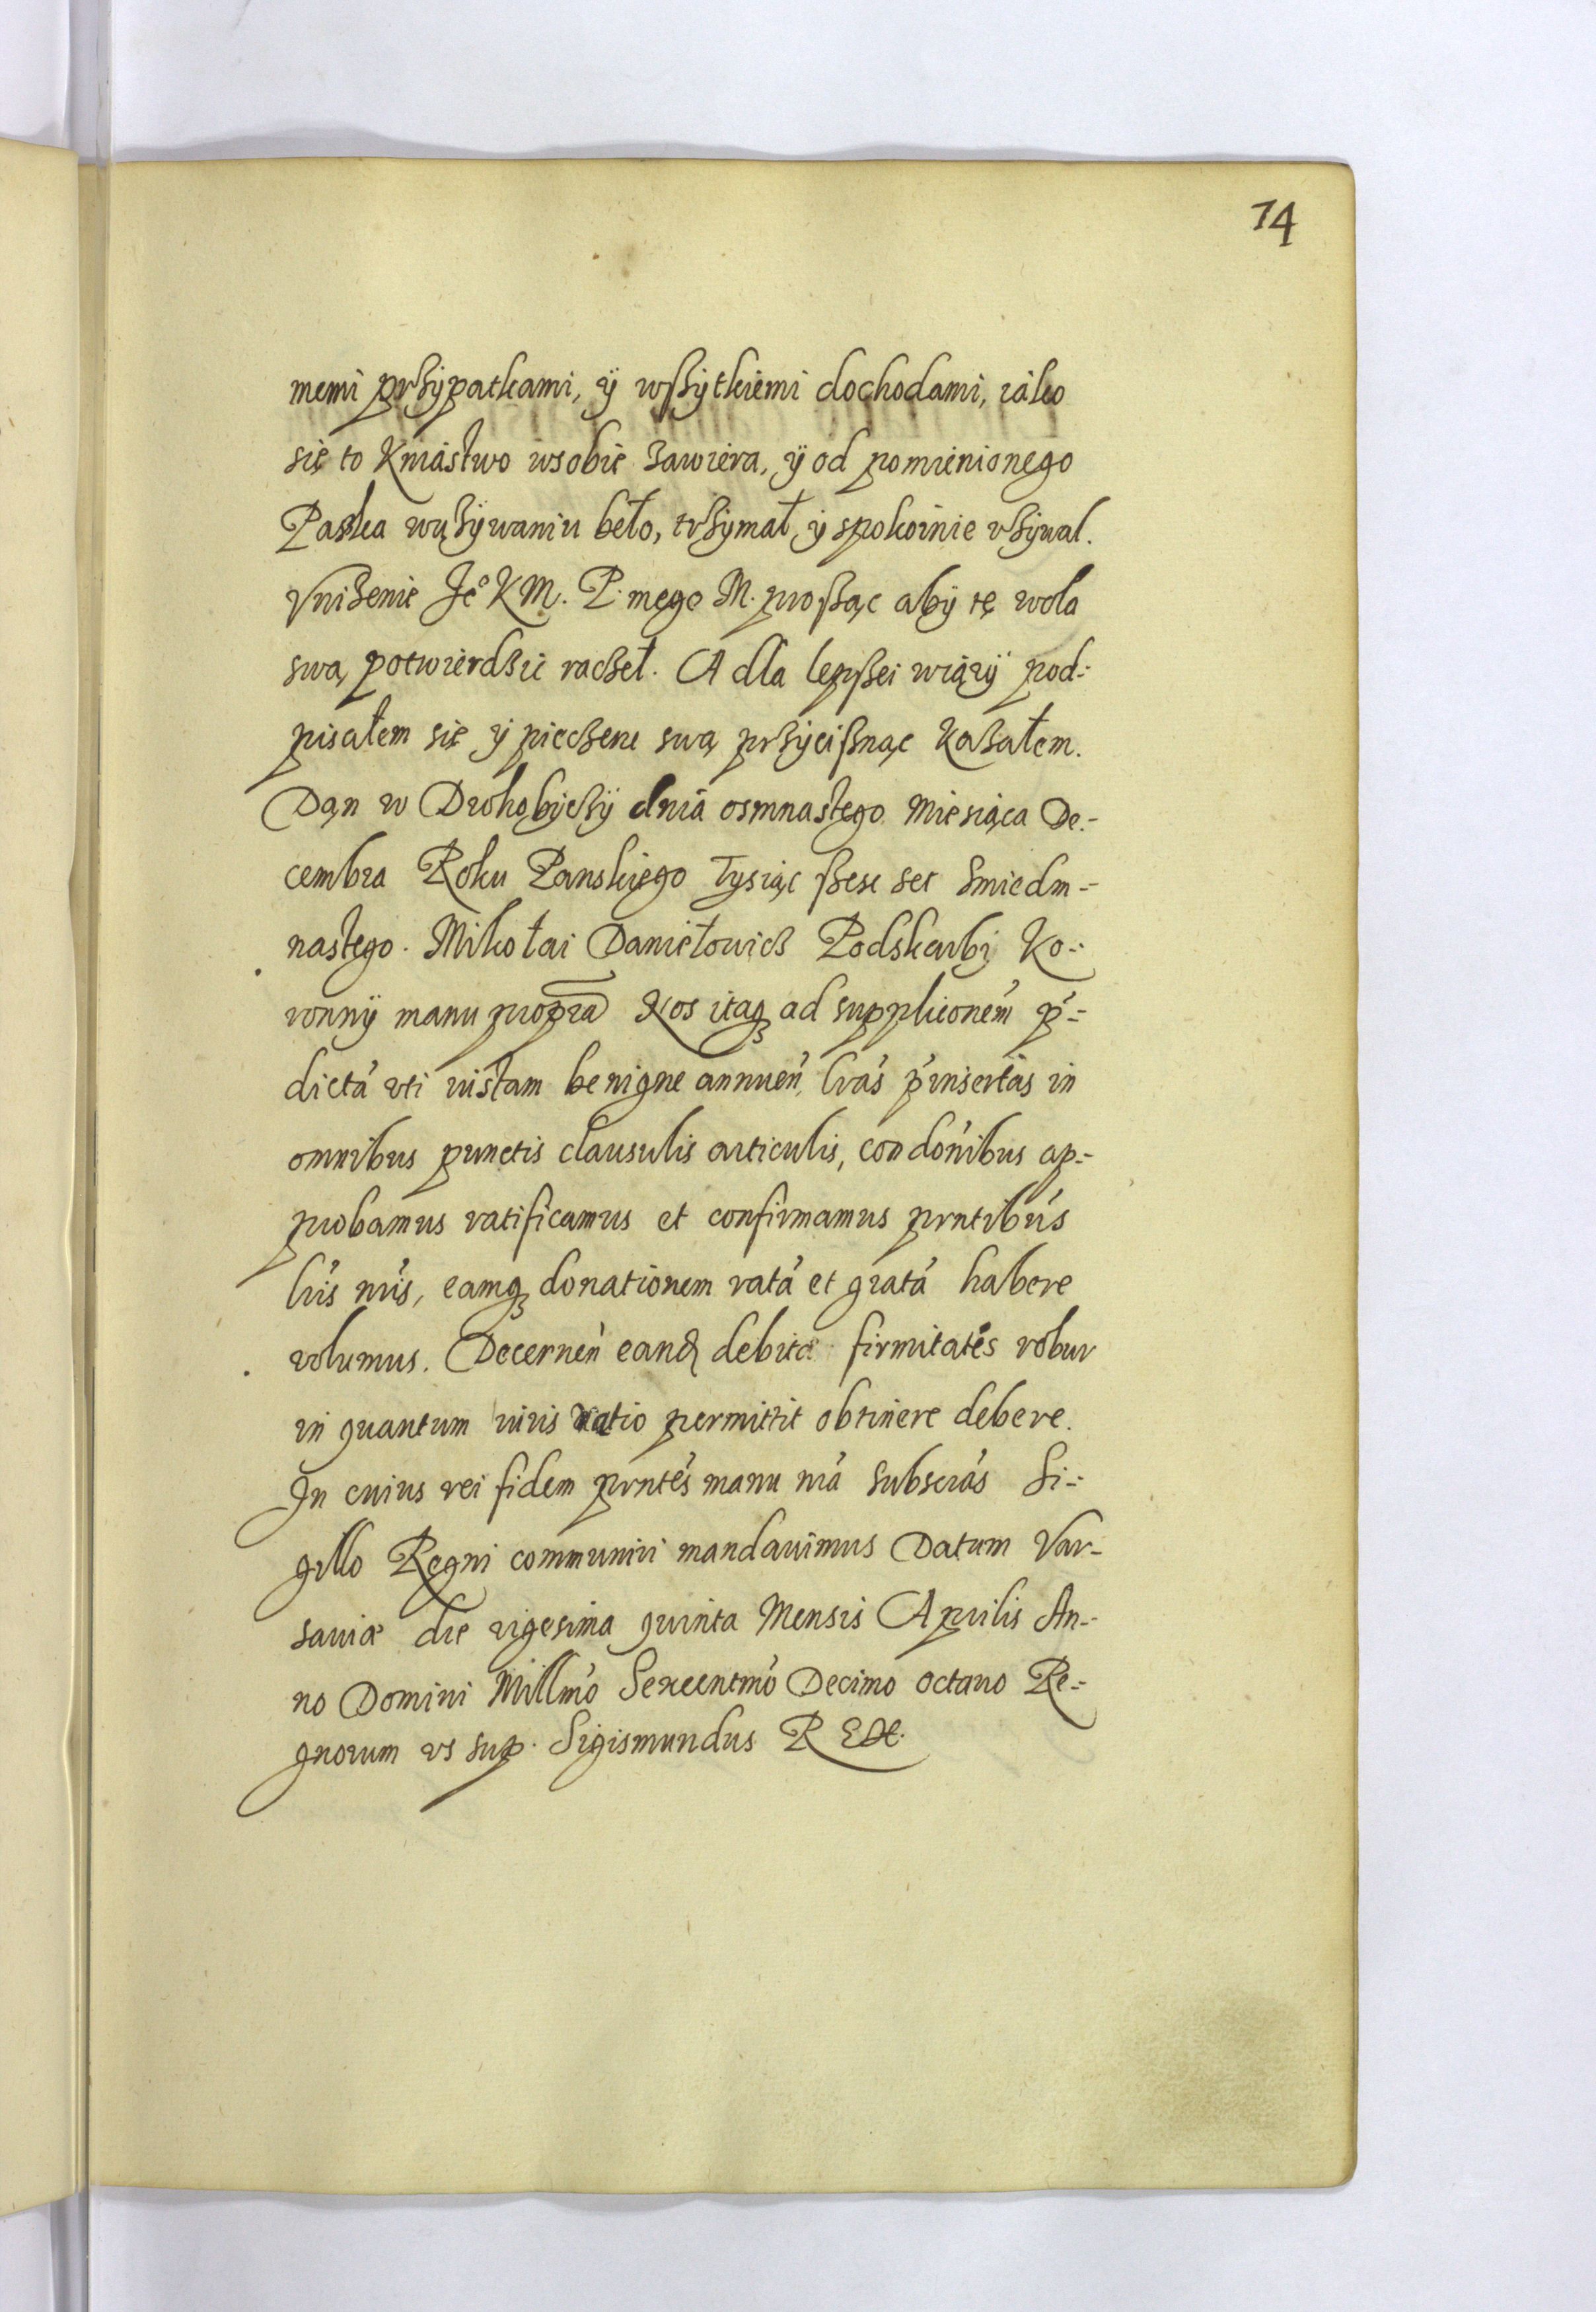 74
memi przÿpatkami, ÿ wszÿtkiemi dochodami, iáko
się to Kniástwo wsobie zawiera, ÿ od pomienionego
Paska wużÿwaniu beło, trzÿmał, ÿ spokoinie vżÿwal.
Vniżenie Je° K M. P. mego M. proszac abÿ tę wola
swą potwierdzić raczeł. A dla lepszei wiarÿ pod-
pisałem się ÿ pieczenc swą przÿcisnąc Kazałem.
Dan w Drohobÿczÿ dniá osmnastego Miesiąca De-
cembra Roku Panskiego Tysiąc szesc set smiedm-
nastego. Mikołai Daniełowicz Podskarbi Ko-
ronnÿ manu propra Nos itaq ad suppliconém p-
dictá uti iustam benigne annuen, lras pinsertas in
omnibus punctis clausulis articulis, condonibus ap-
probamus ratificamus et confirmamus prntibus
lris nris, eamq donationem ratá et gratá habere
volumus. Decernen eand debitæ firmitatis robur
in quantum iuris ratio permittit obtinere debere.
In cuius rei fidem prntes manu nra subscras Si-
gillo Regni communiri mandauimus Datum Var-
sauiæ die vigesima quinta Mensis Aprilis An-
no Domini Millmo Sexcentmo Decimo octauo Re-
gnorum vs sup. Sigismundus R